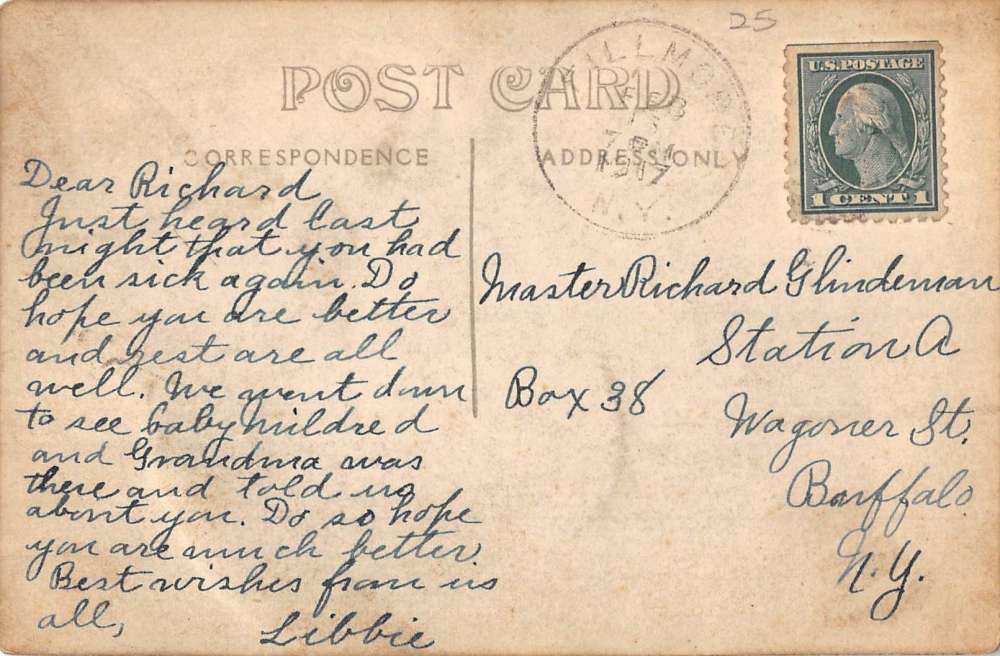 25
POST CARD
U.S. POSTAGE
1 CENT 1
FILLMORE
FEB
1917
N.Y.
CORRESPONDENCE
ADDRESS ONLY
Dear Richard
Just heard last
night that you had
been sick again. Do
hope you are better
and rest are all
well. We went down
to see baby Mildred
and Grandma was
there and told us
about you. Do so hope
you are much better
Best wishes from us
all,
Libbie
Master Richard Glindeman
Station A
Box 38
Wagoner St.
Buffalo
N.Y.